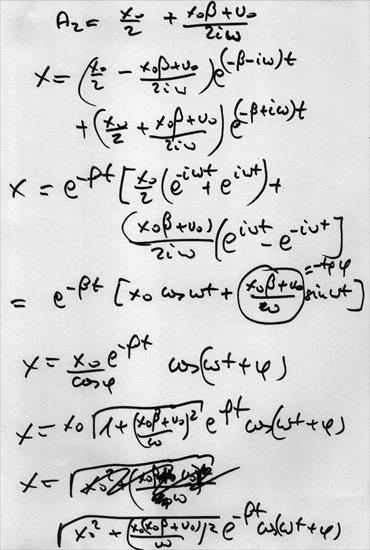 A₂ = x₀/2 + (x₀β+v₀)/(2iω)
x = (x₀/2 − (x₀β+v₀)/(2iω)) e^(−β−iω)t
+ (x₀/2 + (x₀β+v₀)/(2iω)) e^(−β+iω)t
x = e^−βt [x₀/2 (e^−iωt + e^iωt) +
(x₀β+v₀)/(2iω) (e^iωt − e^−iωt]
= e^−βt [x₀ cos ωt + (x₀β+v₀)/ω sin ωt] = −tg φ
x = x₀/cosφ e^−βt cos(ωt + φ)
x = x₀ √(1 + ((x₀β+v₀)/ω)²) e^−βt cos(ωt + φ)
x =
√(x₀² + (x₀(x₀β+v₀)/ω)²) e^−βt cos(ωt + φ)